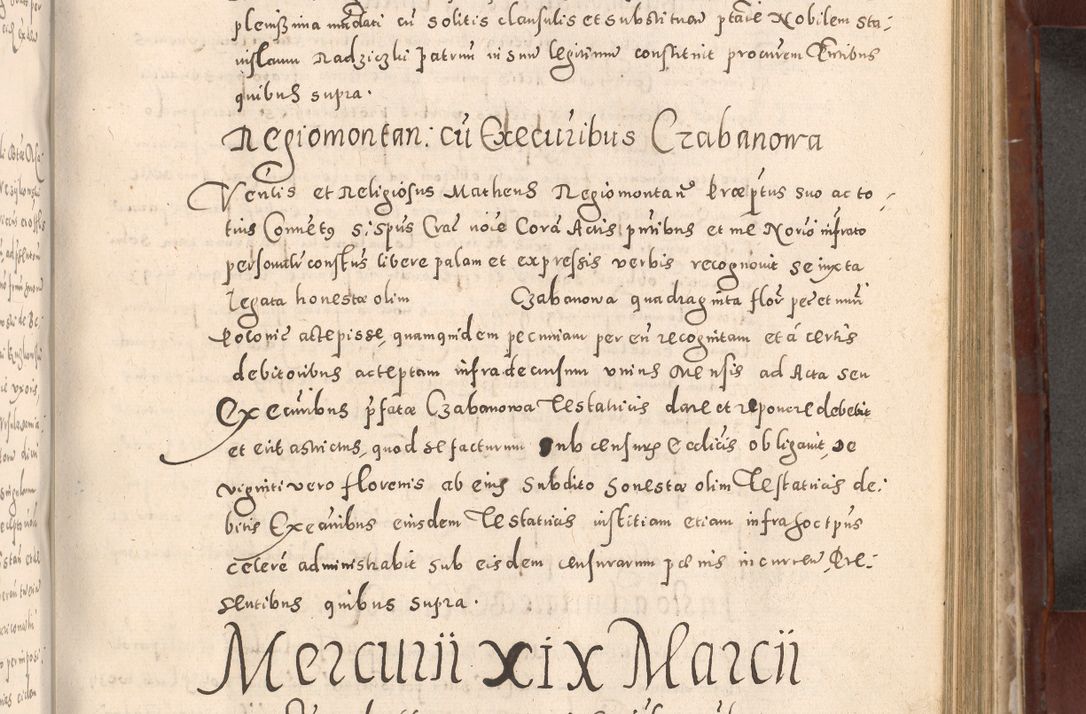 plenissima mandati cū solitis clausulis et substituen ptate Nobilem Sta-
nislaum Radziczki patrum in suu legitimu constituit procurem Pntibus
quibus supra.
Regiomontan: cū Executribus Czabanowa
Venlis et Religiosus Matheus Regiomontan̄ Præptus suo ac to-
tius Conuetꝯ S. Spūs Crac noīe Corā Actis pntibus et me Norīo infrato
personalr constus libere palam et expressis verbis recognouit se iuxta
Legata honestæ olim Czabanowa quadraginta flor pec et nun
Polonic accepisse, quamquidem pecuniam per eū recognitam et á certis
debitoribus acceptam infra decursum unius Mensis ad Acta seu
Executribus pfatæ Czabanowa Testatricis dare et reponere debebit
et erit astrictus, quod se facturum sub censuris Ecclicis obligauit, De
viginti vero florenis ab eius subdito honestæ olim Testatricis de-
bitis Executribus eiusdem Testatricis iustitiam etiam infra hoc tpus
celeré administrabit sub eisdem censurarum pœnis incurren, Præ-
sentibus quibus supra.
Mercurii xix Marcii